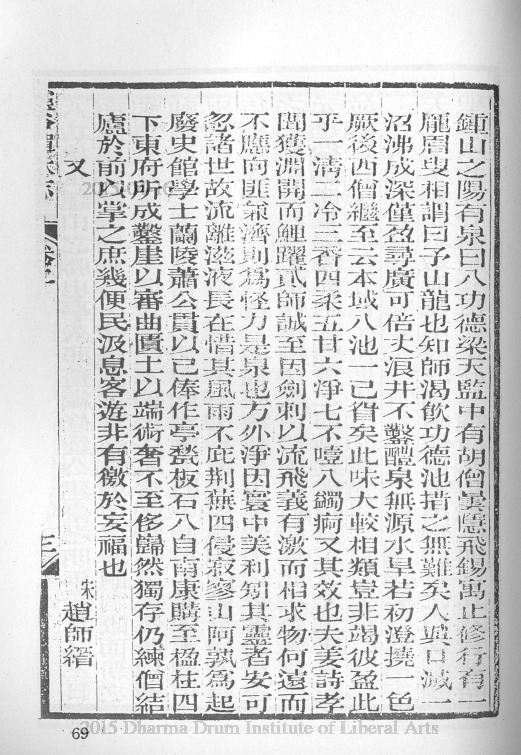 鍾山之陽有泉曰八功德梁天監中有胡僧曇隱飛錫寓止修行有一
龐眉叟相謂曰予山龍也知師渴飲功德池措之無難矣人與口滅一
沼沸成深僅盈尋廣可倍丈浪井不鑿醴泉無源水旱若初澄撓一色
厥後西僧繼至云本域八池一已眢矣此味大較相類豈非竭彼盈此
乎一清二冷三香四柔五甘六淨七不噎八蠲痾又其效也夫姜詩孝
聞獲淵開而鯉躍貳師誠至因劍刺以流飛義有激而相求物何遠而
不應向匪兼濟則為怪力是泉也方外淨因寰中美利矧其靈者安可
忽諸世故流離滋液長在惜其風雨不庇荆蕪四侵寂寥山阿孰為起
廢史館學士蘭陵蕭公貫以己俸作亭甃板石八自南康購至楹柱四
下東府所成鑿崖以審曲匱土以端術奢不至侈巋然獨存仍練僧結
廬於前以掌之庶幾便民汲息客遊非有徼於妄福也
又
宋 趙師縉
卷
三
69
2015 Dharma Drum Institute of Liberal Arts